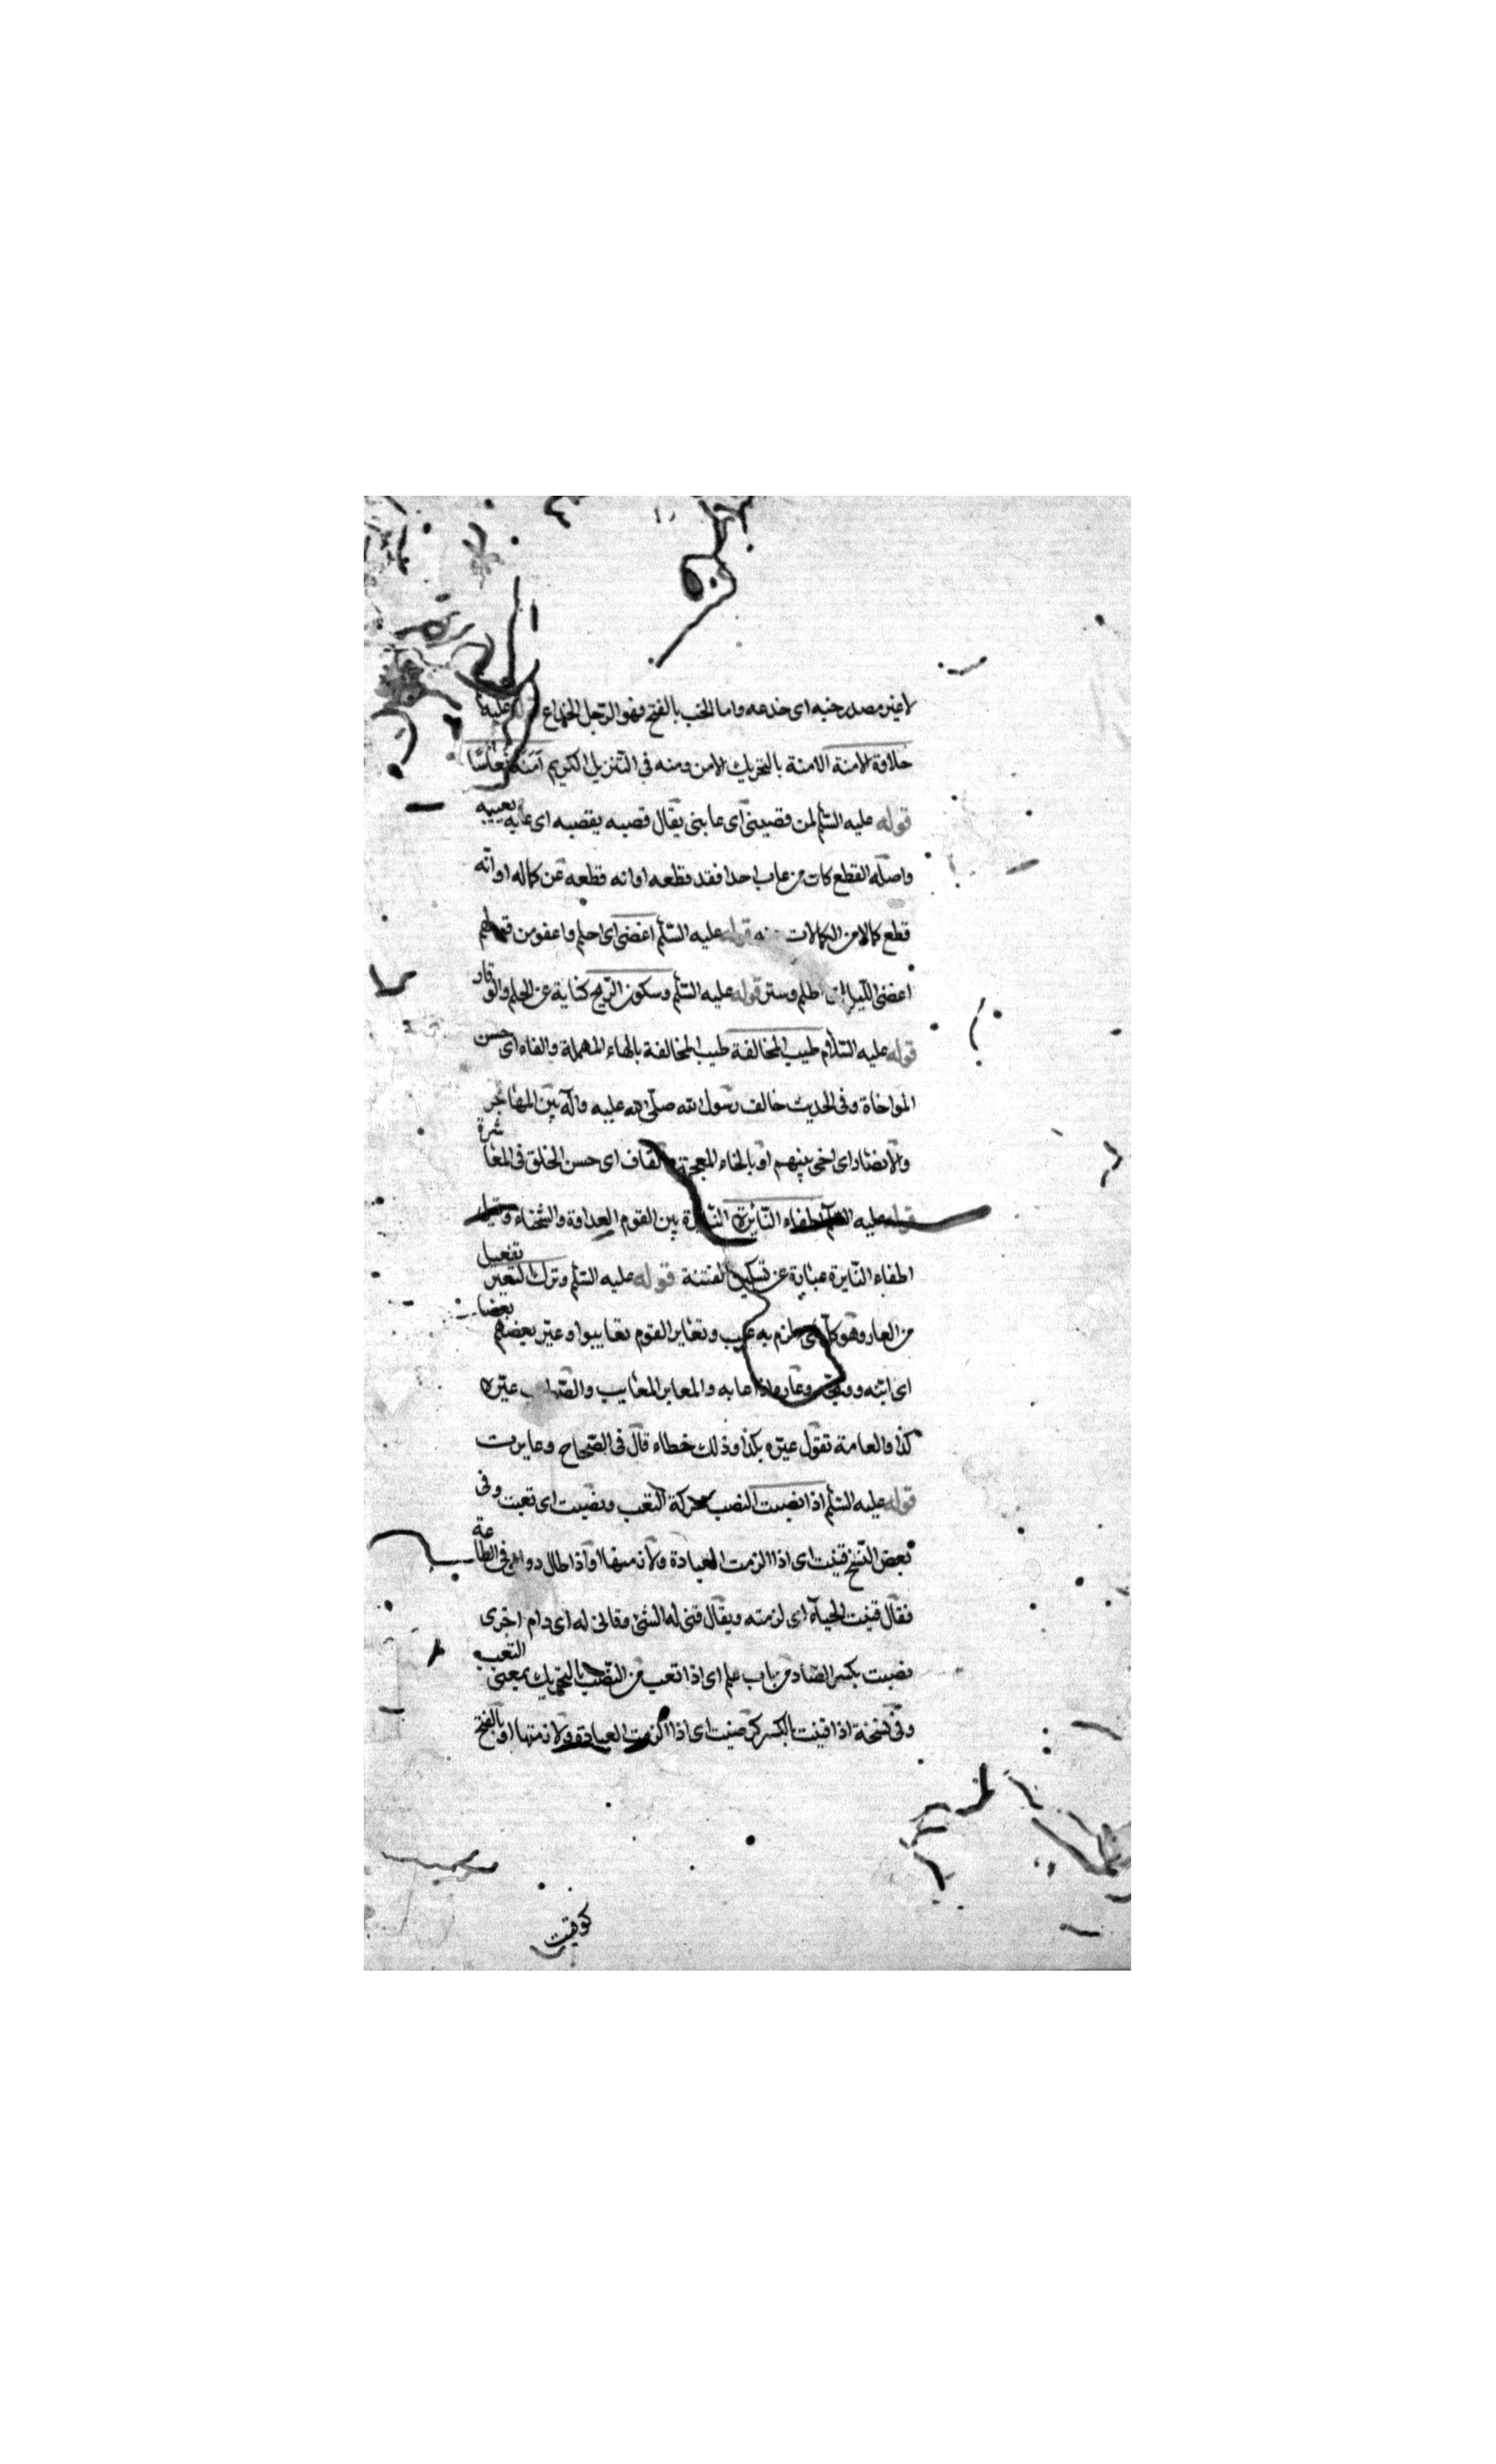 لا غير مصدر خبه اى خدعه واما الخب بالفتح فهو الرّجل الخداع عليه
حلاوة الامنة الامنة بالتحريك الامن ومنه فى التّنزيل الكريم اَمَنَةً نُعَاسًا
قوله عليه السّلم لمن قصبنى اى عابنى يقال قصبه يقصبه اى عابه يعيبه
واصله القطع كان من عاب احدا فقد قطعه او انه قطعه عن كماله او انّه
قطع كمالا من الكمالات منه قوله عليه السّلم اغضى اى احلم واعفو من
اغضى اللّيل اى اظلم وستر قوله عليه السّلم وسكون الرّيح كناية عن الحلم والوقار
قوله عليه السّلام طيب المخالفة طيب المخالفة بالحاء المهملة والفاء اى حسن
المواخاة وفى الحديث خالف رسول الله صلّى الله عليه وآله بين المهاجر
والانصار اى اخى بينهم او بالخاء المعجمة والقاف اى حسن الخلق فى المعاشرة
قوله عليه السّلم اطفاء النّايرة النّايرة بين القوم العداوة والشّحناء وقيل
اطفاء النّايرة عبارة عن تسكين الفتنة قوله عليه السّلم وترك التعير تفعيل
من العار وهو كل شى يلزم به عيب وتعاير القوم تعايبوا وعيّر بعضهم بعضا
اى ابنه ووبخه وعاره اذا عابه والمعاير المعايب والصّواب عيّره
كذا والعامة تقول عيّره بكذا وذلك خطاء قال فى الصّحاح وعايرت
قوله عليه السّلم اذا نصبت النصب محركة التعب ونصبت اى تعبت وفى
بعض النّسخ قنيت اى اذا الزمت العبادة ولازمتها او اذا طال دوامى فى الطاعة
فقال قنيت الحياء اى لزمته ويقال قنى له الشئ وقانى له اى دام اخرى
نصبت بكسر الصّاد من باب علم اى اذا تعب من النّصب بالتحريك بمعنى التّعب
وفى نسخة اذا قنيت بالكسر كرضيت اى اذا الزمت العبادة ولازمتها او بالفتح